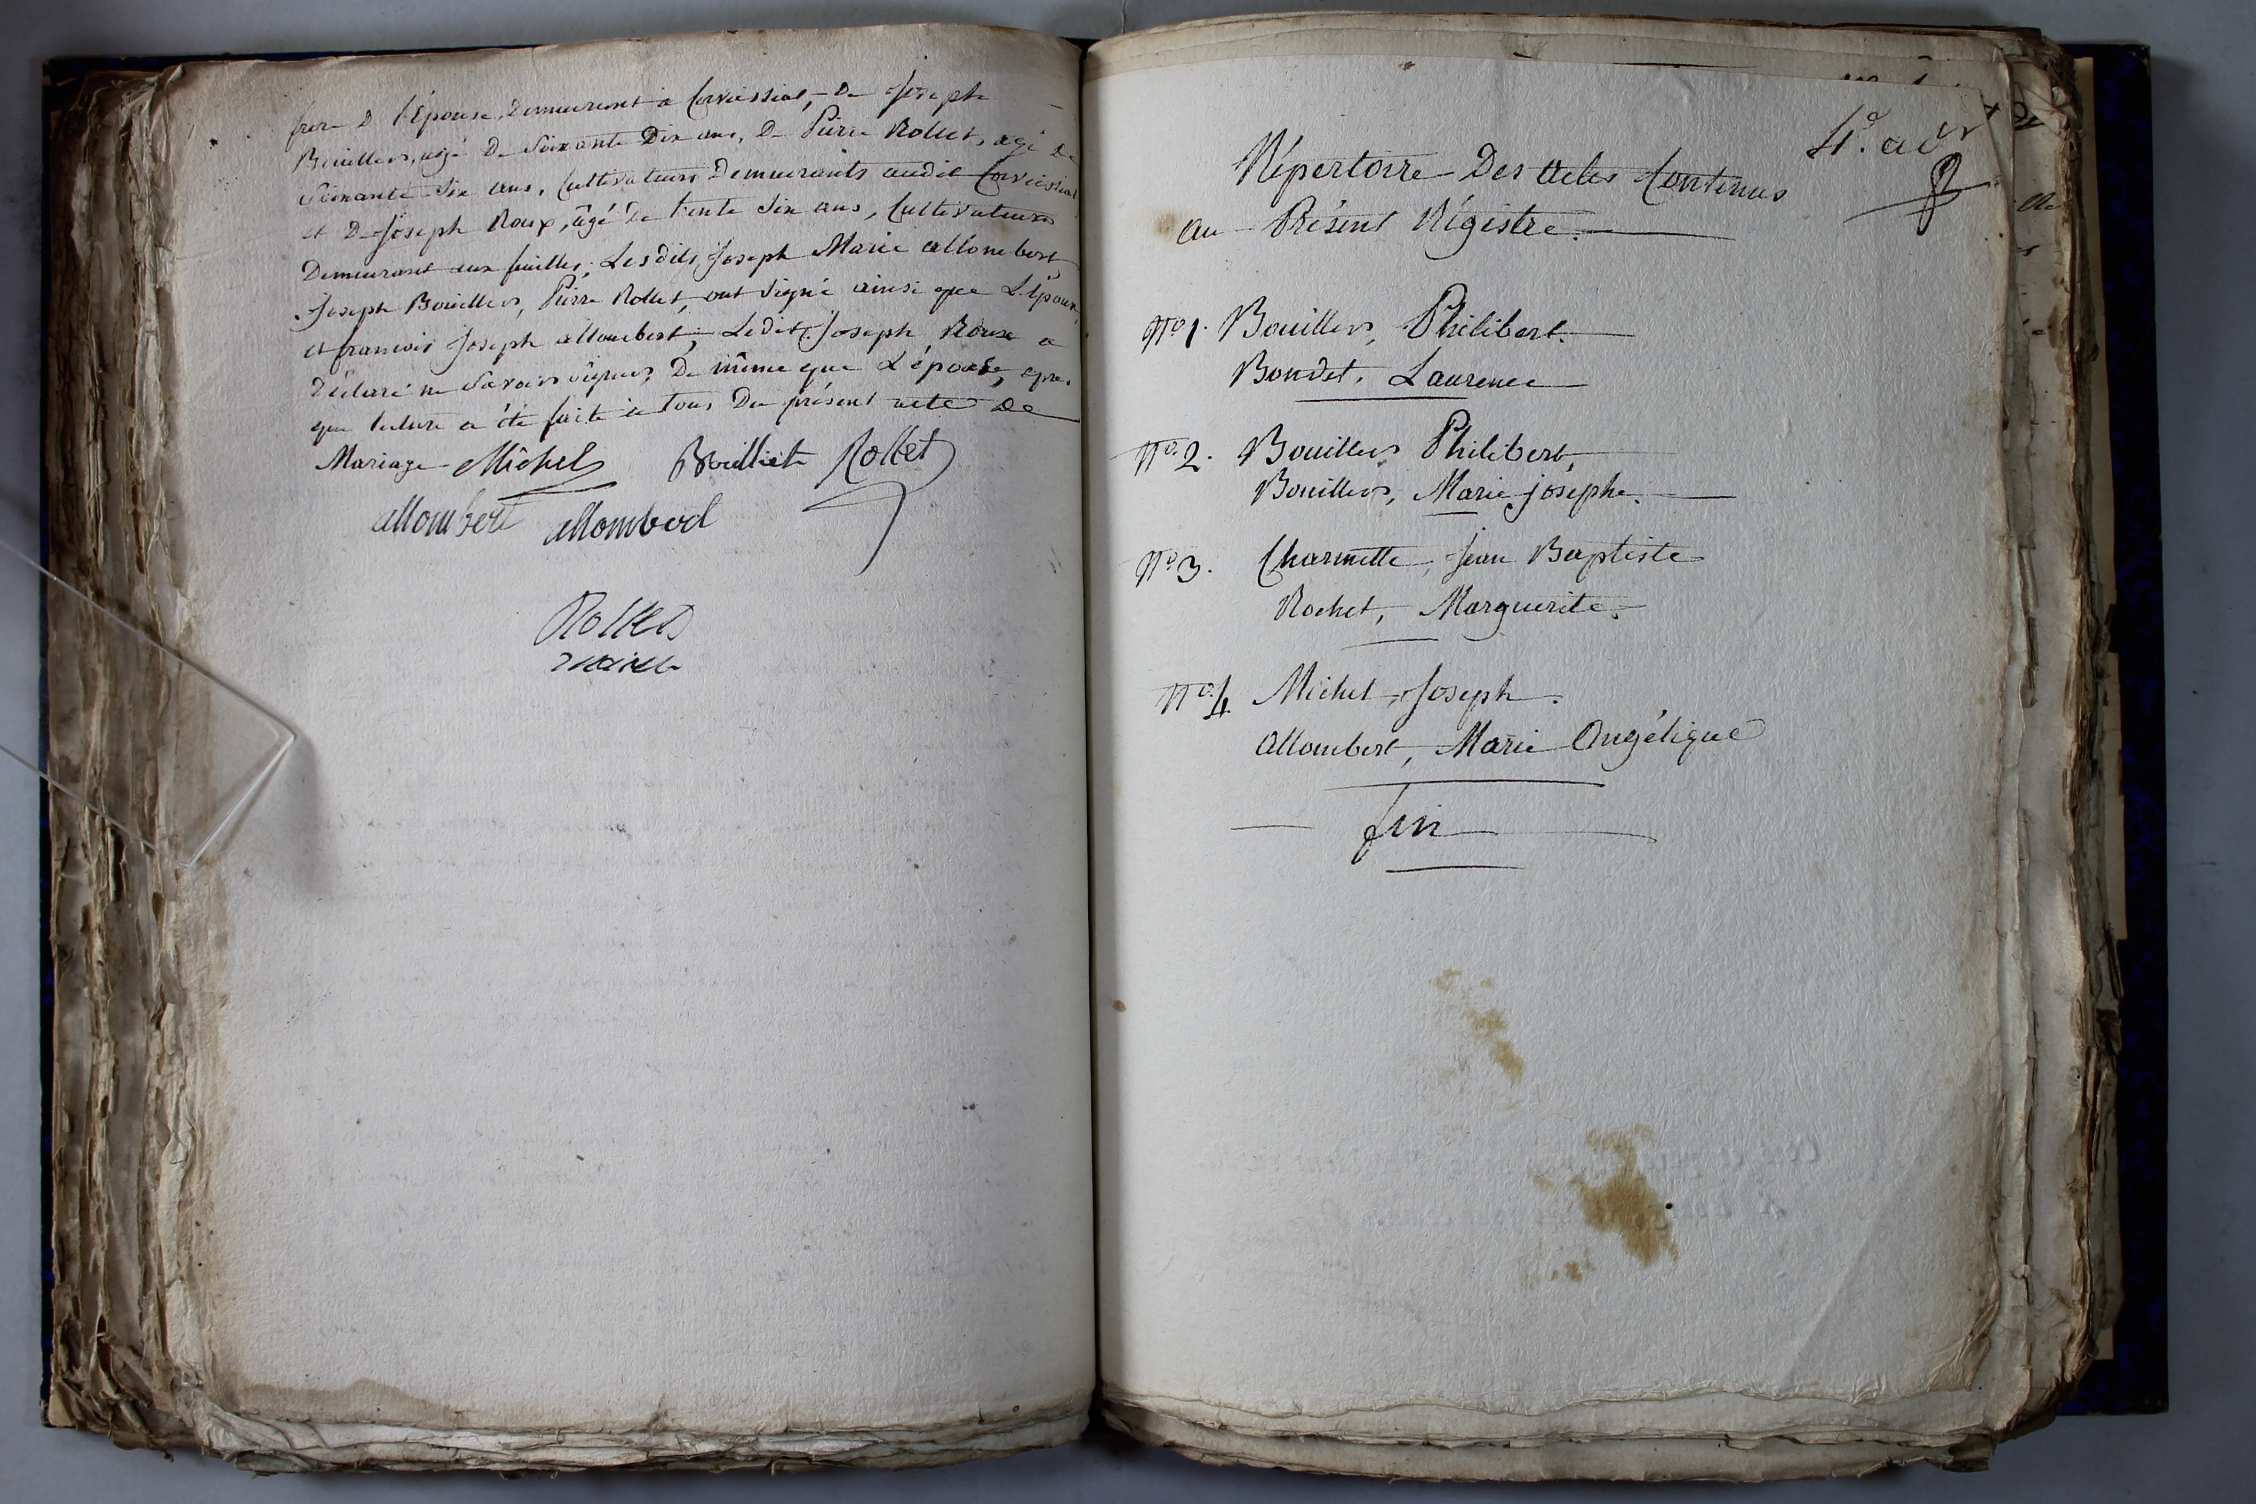 frere D l'Epouse, Demeurant à Corvessiat, De Joseph
Bouillers, agé De Soixante Dix ans, De Pierre Rollet, agé de
Soixante Six ans, Cultivateurs Demeurants audit Corvessiat
et De Joseph Roux, âgé de trente Six ans, Cultivateur
Demeurant aux feuilles, Lesdits Joseph Marie allombert,
Joseph Bouillers, Pierre Rollet, ont Signé ainsi que L'Epoux,
et francois Joseph allombert, Ledit Joseph Roux a
Déclaré ne Savoir Signer, De même que L'épouse, apres
que lecture a été faite à tous Du présent acte De
Mariage Michel Bouillet Rollet
allombert allombert
Rollet
4e. adr
Répertoire Des Actes Contenus
au Présent Régistre.
No 1. Bouillers, Philibert.
Bondet, Laurence
No. 2. Bouillers Philibert,
Bouillers, Marie josephe.
No 3. Charmette, Jean Baptiste
Rochet, Marguerite.
No. 4 Michel, Joseph.
Allombert, Marie Angélique
fin